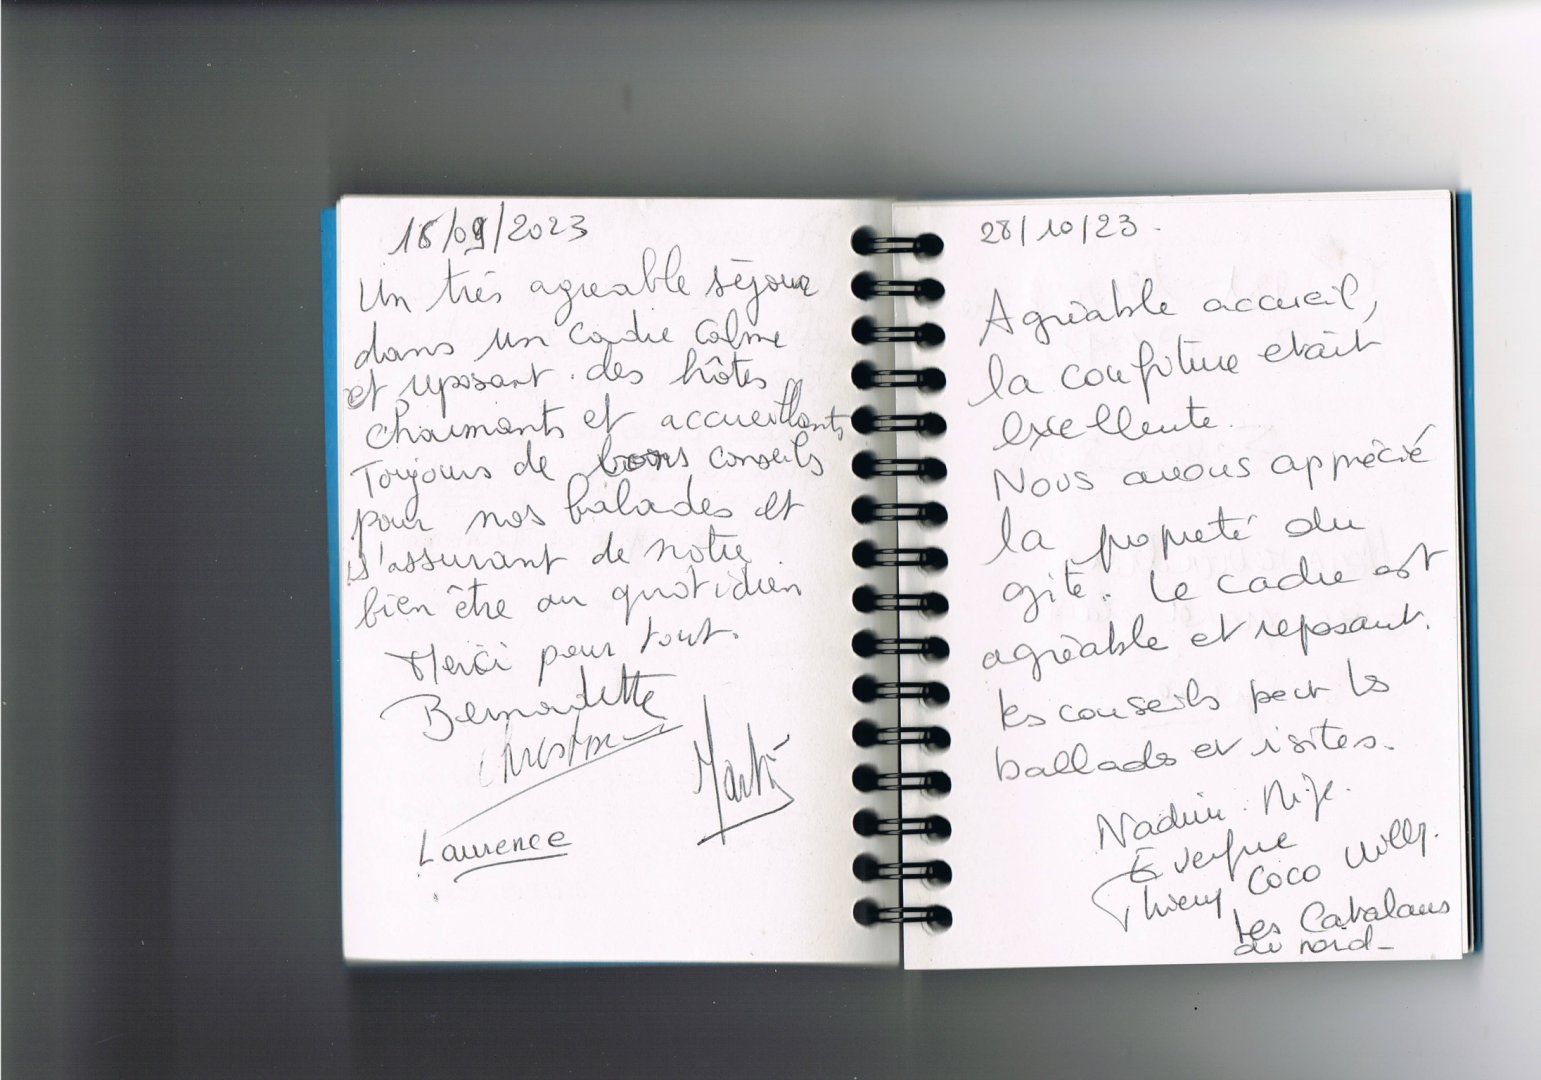 18/09/2023
Un très agreable séjour
dans un cadre calme
et reposant. des hôtes
charmants et accueillants
Toujours de bons conseils
pour nos balades et
s'assurant de notre
bien être au quotidien
Merci pour tout.
Bernadette
Christine
Laurence
28/10/23.
Agréable accueil,
la confiture etait
excellente.
Nous avons apprécié
la propreté du
gite. Le cadre est
agréable et reposant.
les conseils pour les
ballads et visites.
Nadine.
Thierry Coco Willy.
Les Catalans
du nord_